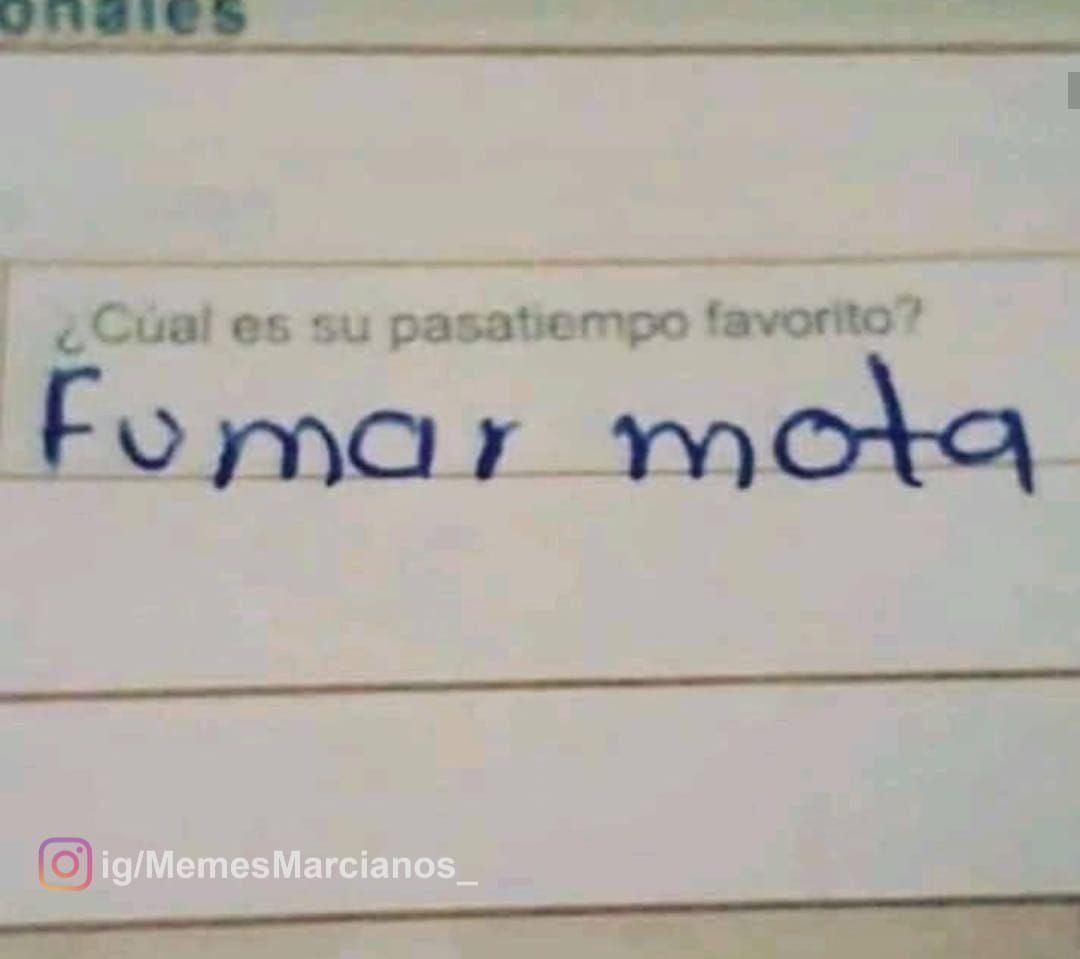 onales
¿Cúal es su pasatiempo favorito?
Fumar mota
ig/MemesMarcianos_